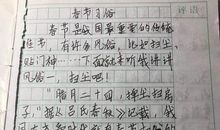 春节习俗
春节是我国最重要的传统
佳节，有许多风俗，比如扫尘、
贴门神……下面就来听我讲讲
风俗一，扫尘吧！
“腊月二十四，掸尘扫房
子”，据《吕氏春秋》记载，我